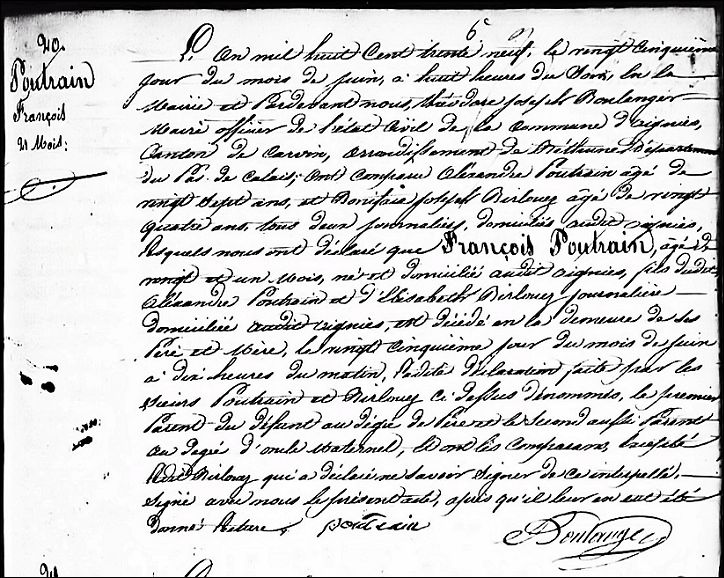 20.
Poutrain
François
21 Mois.
6e
L'an mil huit cent trente neuf, le vingt cinquième
jour du mois de juin, à huit heures du soir, en la
Mairie et Pardevant nous, théodore joseph Boulanger
Maire officier de l'état civil de la commune d'oignies,
Canton de Carvin, arrondissement de Béthune Département
du Pas de calais; ont comparu Alexandre Poutrain âgé de
vingt sept ans, et Boniface joseph Birlouez âgé de vingt
quatre ans, tous deux journaliers, domiciliés audit oignies,
lesquels nous ont déclaré que François Poutrain, âgé de
vingt et un Mois, né et domicilié audit oignies, fils dudit
Alexandre Poutrain et d'Elisabeth Birlouez journalière
domiciliée audit oignies, est décédé en la demeure de ses
Père et Mère, le vingt cinquième jour du mois de juin
à dix heures du matin, ladite déclaration faite par les
sieurs Poutrain et Birlouez ci dessus dénommés, le premier
Parent du défunt au dégré de Père et le second aussi Parent
au degré d'oncle maternel, et ont les comparans, excepté
ledit Birlouez qui a déclaré ne savoir signer de ce interpellé,
signé avec nous le présent acte, après qu'il leur en eut été
donné lecture, poutrain
Boulanger
21